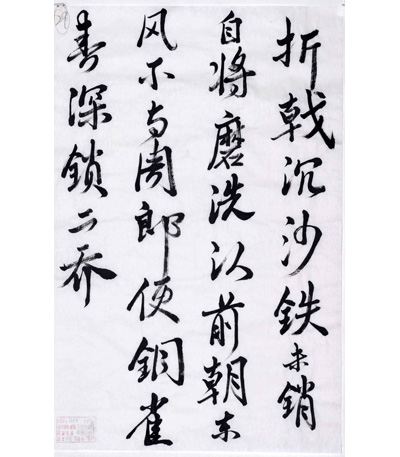 折戟沉沙鉄未銷
自将磨洗认前朝东
风不与周郎便銅雀
春深鎖二乔